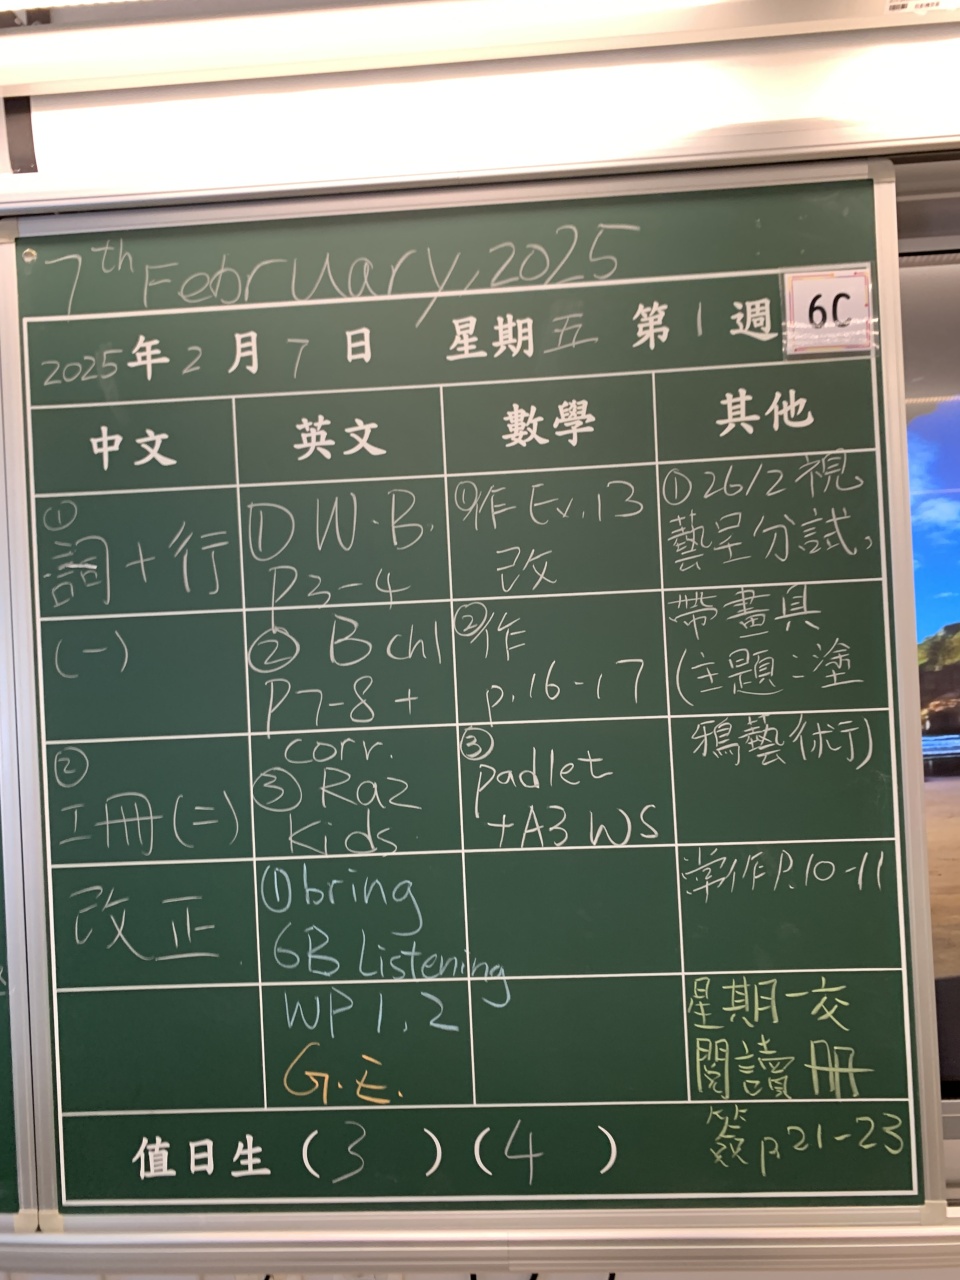 7th February, 2025
2025年2月7日 星期五 第1週 6C
中文 英文 數學 其他
①
詞+行
(一)
②
工冊(二)
改正
① W.B.
P3-4
② B ch1
P7-8 +
corr.
③ Raz
Kids
① bring
6B Listening
WP 1, 2
G.E.
①作 Ex.13
改
②作
p.16-17
③
padlet
+A3 WS
①26/2 視
藝呈分試,
帶畫具
(主題:塗
鴉藝術)
常作P.10-11
星期一交
閱讀冊
簽p.21-23
值日生(3)(4)